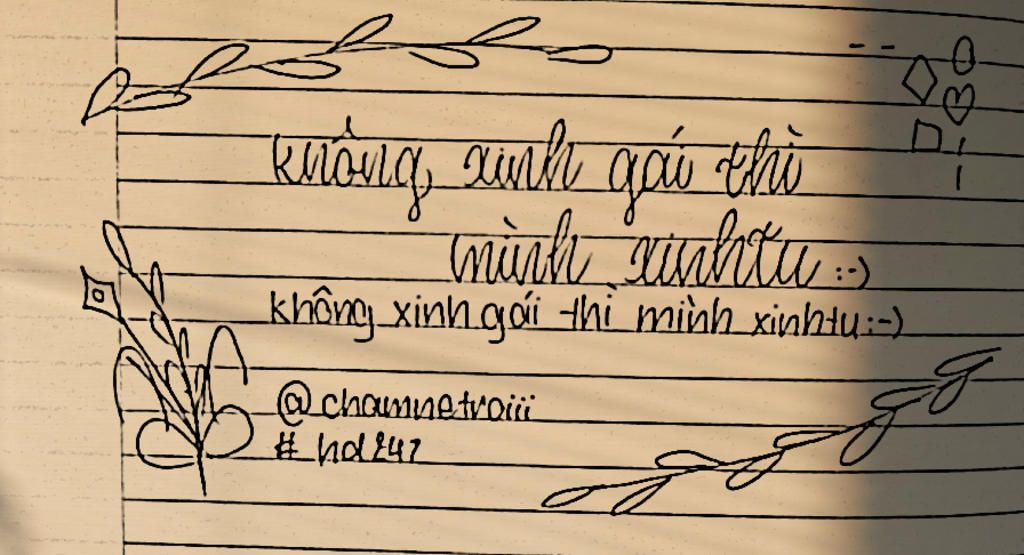 không xinh gái thì
mình xinhtu :-)
không xinh gái thì mình xinhtu :-)
@chamnetroiii
# hdz47